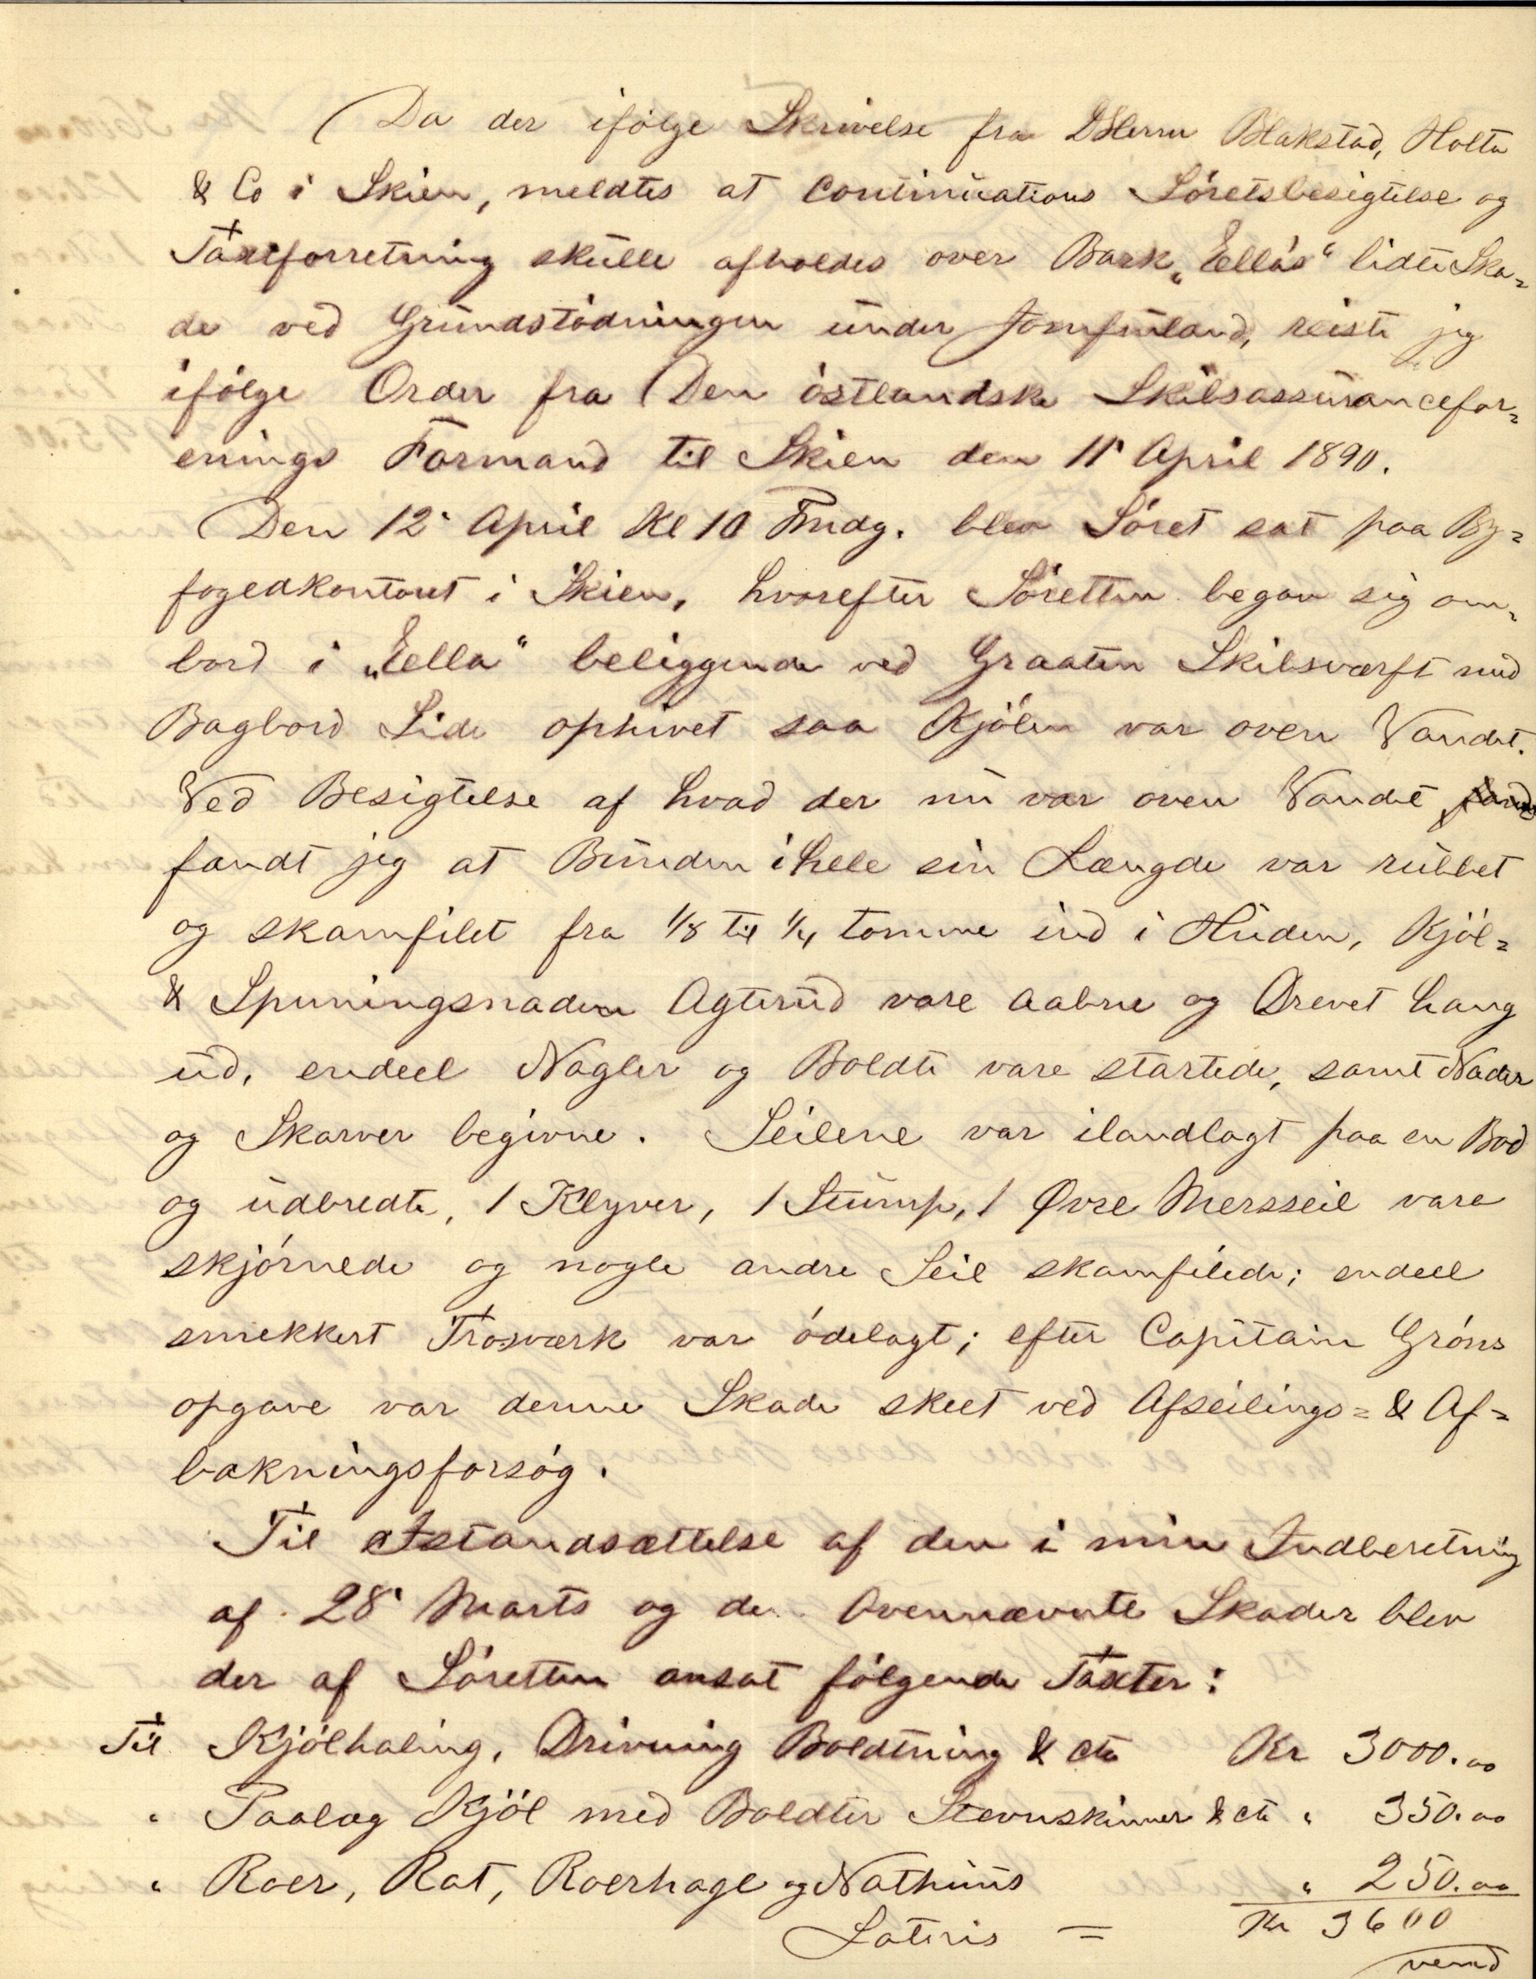 Da der ifølge Skrivelse fra DHerrer Blakstad, Holta
& Co i Skien, meldtes at Continuations Sóretsbesigtelse og
Taxtforretning skulle afholdes over Bark „Ella's" lidte Ska=
de ved Grundstódningen under Jomfruland, reiste jeg
ifólge Order fra Den óstlandske Skibsassurancefor=
enings Formand til Skien den 11' April 1890.
Den 12' April Kl 10 Fmdg. blev Sóret sat paa By=
fogedkontoret i Skien, hvorefter Sóretten begav sig om=
bord i „Ella" beliggende ved Graaten Skibsværft med
Bagbord Side ophivet saa Kjólen var oven Vandet.
Ved Besigtelse af hvad der nu var oven Vandet
fandt jeg at Bunden i hele sin Længde var rubbet
og skamfilet fra 1/8 til 1/4 tomme ind i Huden, Kjól=
& Spuningsnaden Agterud vare aabne og Drevet hang
ud, endeel Nagler og Boldte vare startede, samt Nader
og Skarver begivne. Seilene var ilandlagt paa en Bod
og udbredte, 1 Klyver, 1 Stump, 1 Øvre Mersseil vare
skjórnede og nogle andre Seil skamfilede; endeel
smekkert Trosværk var ódelagt; efter Capitain Gróns
opgave var denne Skade skeet ved Afseilings= & Af=
bakningsforsóg.
Til Istandsættelse af den i min Indberetning
af 28' Marts og de Ovennævnte Skader blev
der af Sóretten ansat fólgende Taxter:
Til Kjólhaling, Drivning Boldtning & cta Kr 3000.00
" Paalæg Kjól med Boldter Stevnskinner & cta " 350.00
" Roer, Rat, Roerhage og Nathuus " 250.00
Lateris = Kr 3600
vend